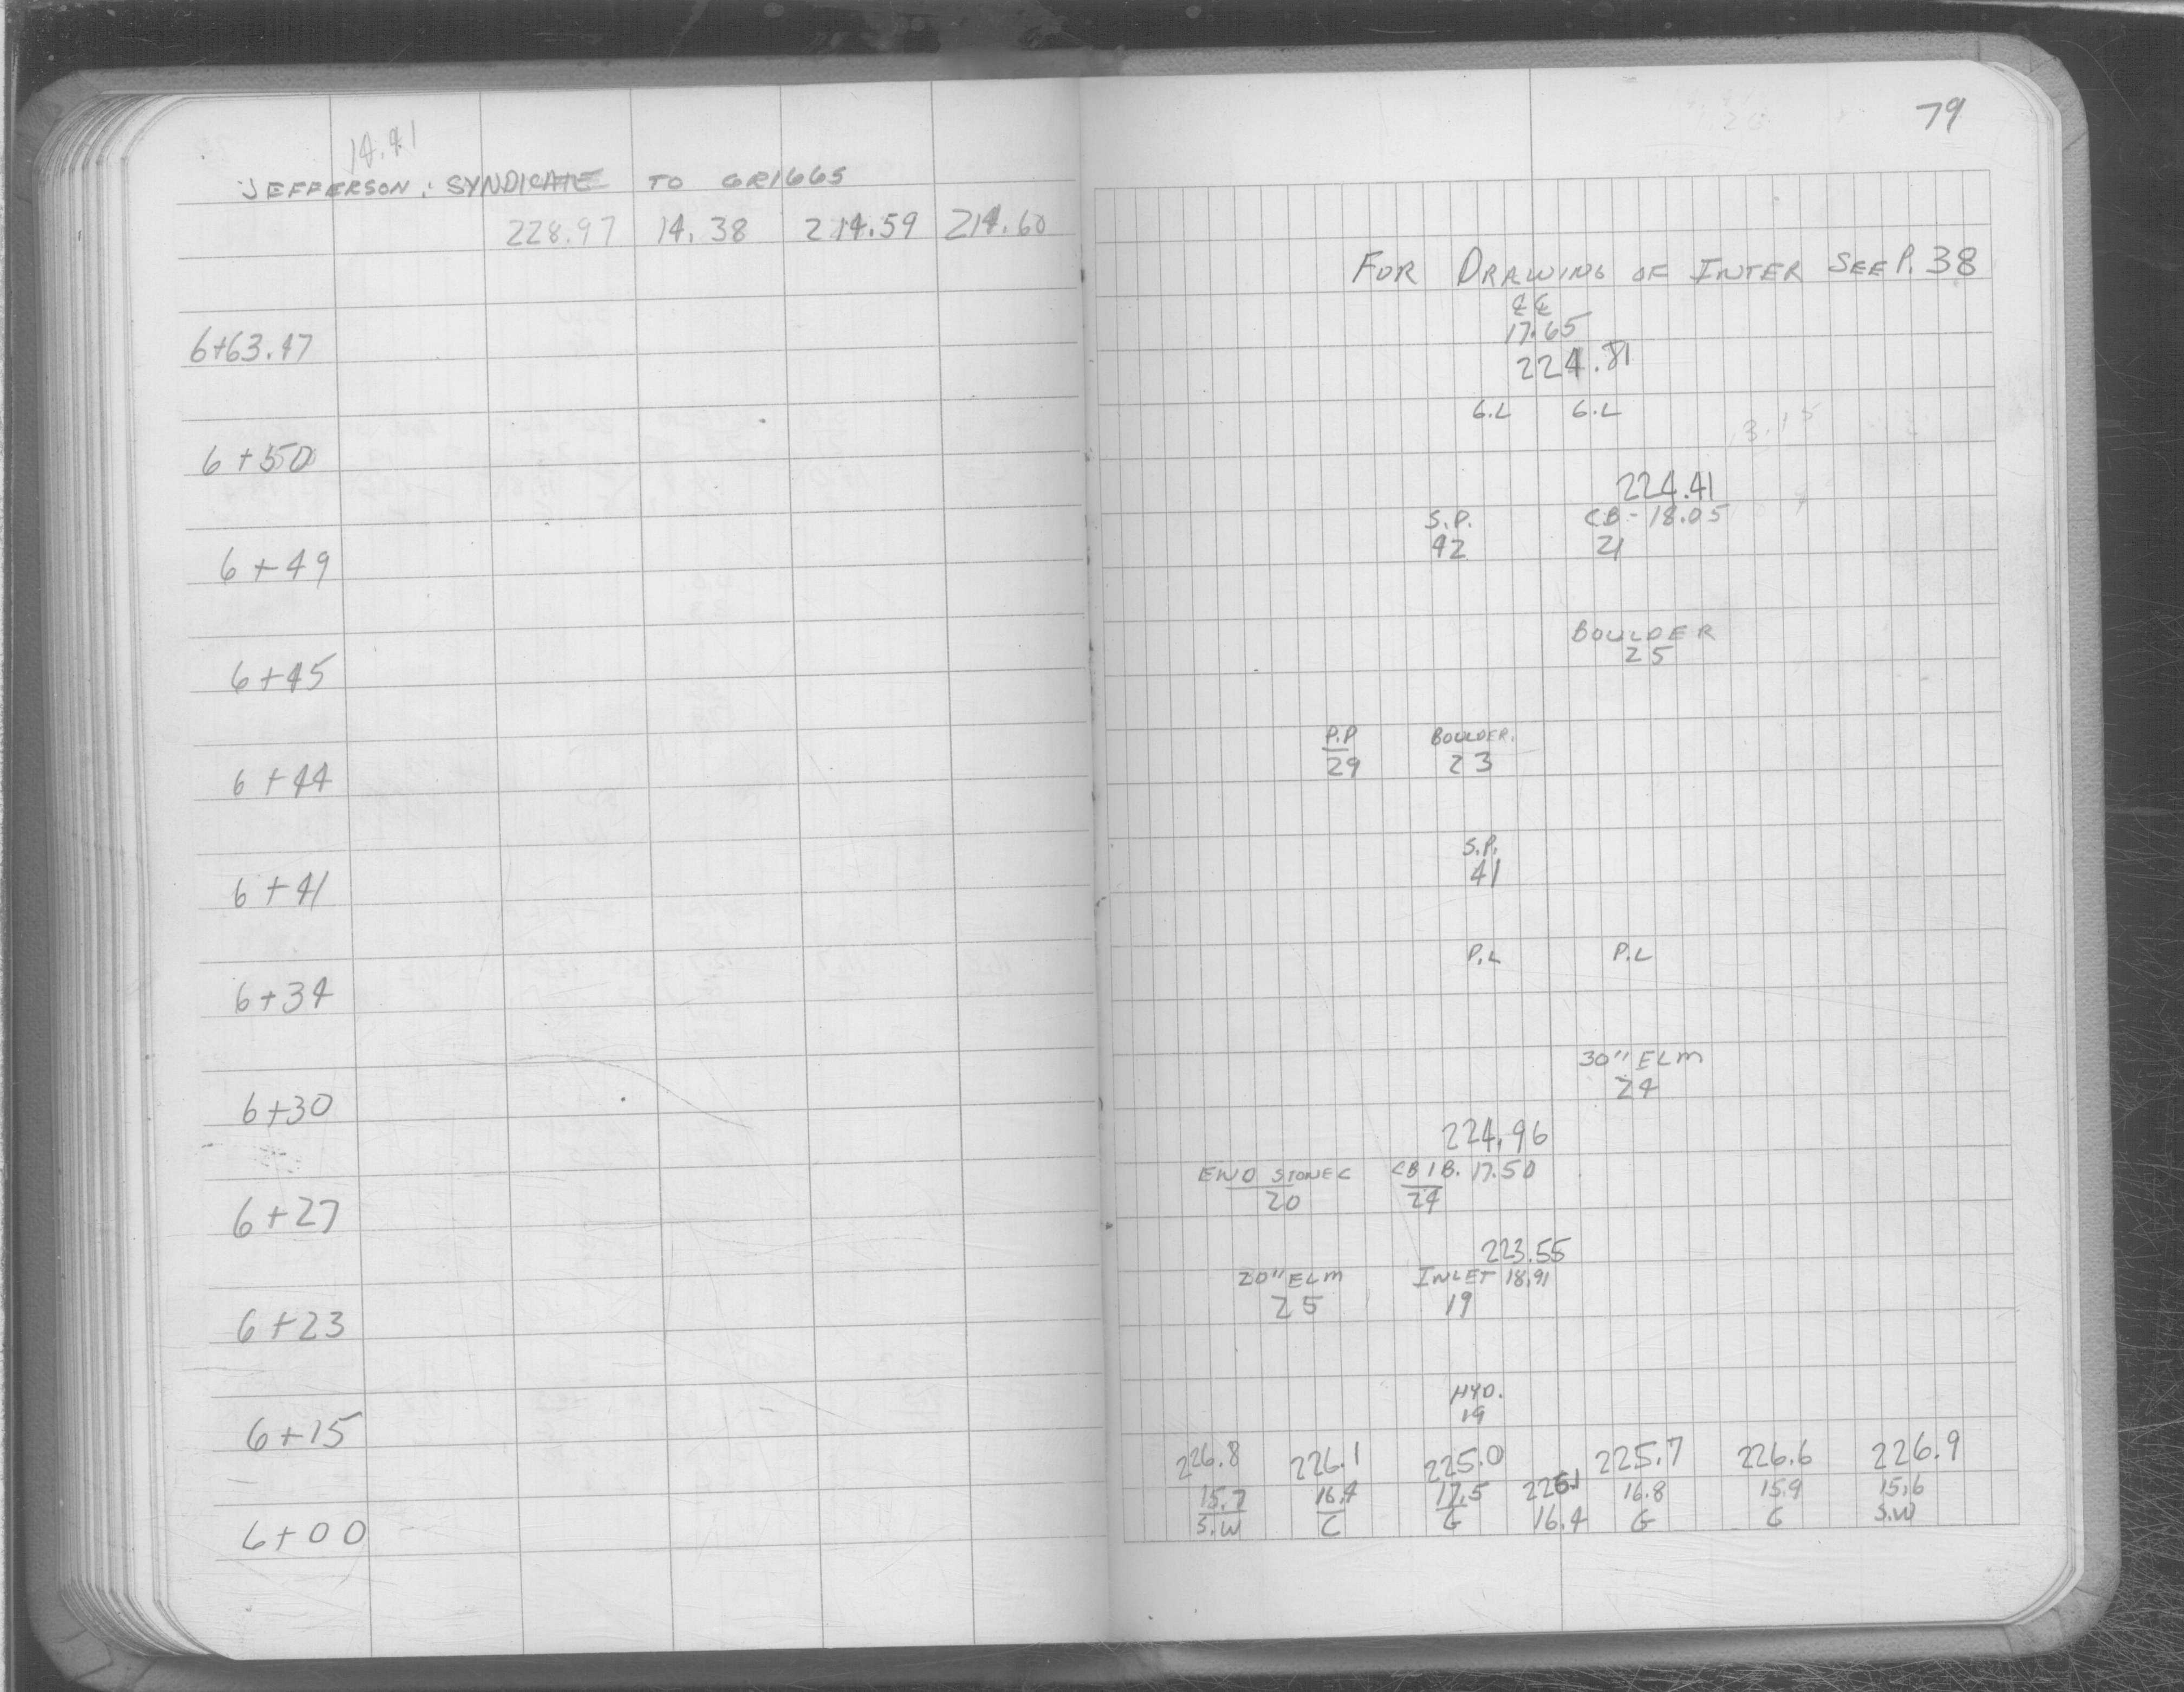 79
14.41
JEFFERSON: SYNDICATE TO GRIGGS
228.97 14.38 214.59 214.60
FOR DRAWING OF INTER SEE P. 38
℄ ℄
6+63.47 17.65
224.81
G.L G.L
6+50
224.41
S.P. CB - 18.05
6+49 42 21
BOULDER
6+45 25
P.P BOULDER.
6+44 29 23
S.P.
6+41 41
P.L P.L
6+34
30" ELM
6+30 24
224.96
END STONE C CB 1B. 17.50
6+27 20 24
223.55
20" ELM INLET 18.91
6+23 25 19
HYD.
6+15 19
226.8 226.1 225.0 225.7 226.6 226.9
15.7 16.4 17.5 226.1 16.8 15.9 15.6
6+00 S.W C G 16.4 G C S.W